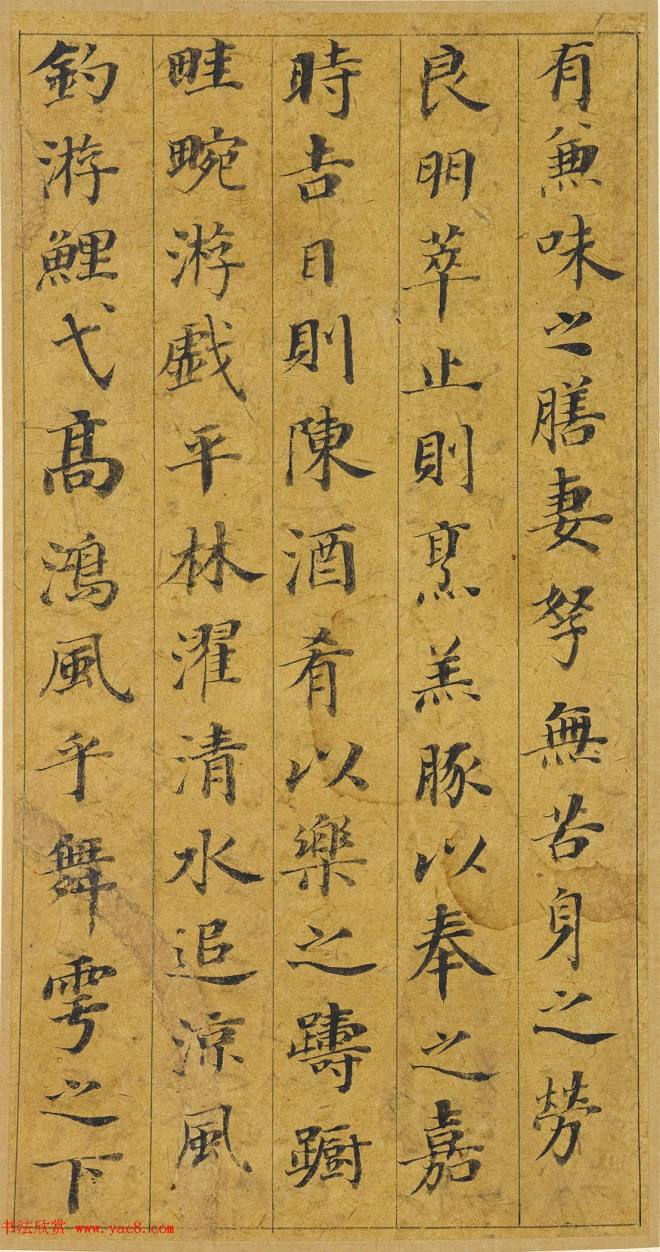 有兼味之膳妻孥無苦身之勞
良朋萃止則烹羔豚以奉之嘉
時吉日則陳酒肴以樂之躊躕
畦畹游戲平林濯清水追涼風
釣游鯉弋高鴻風乎舞雩之下
书法欣赏 www.yac8.com